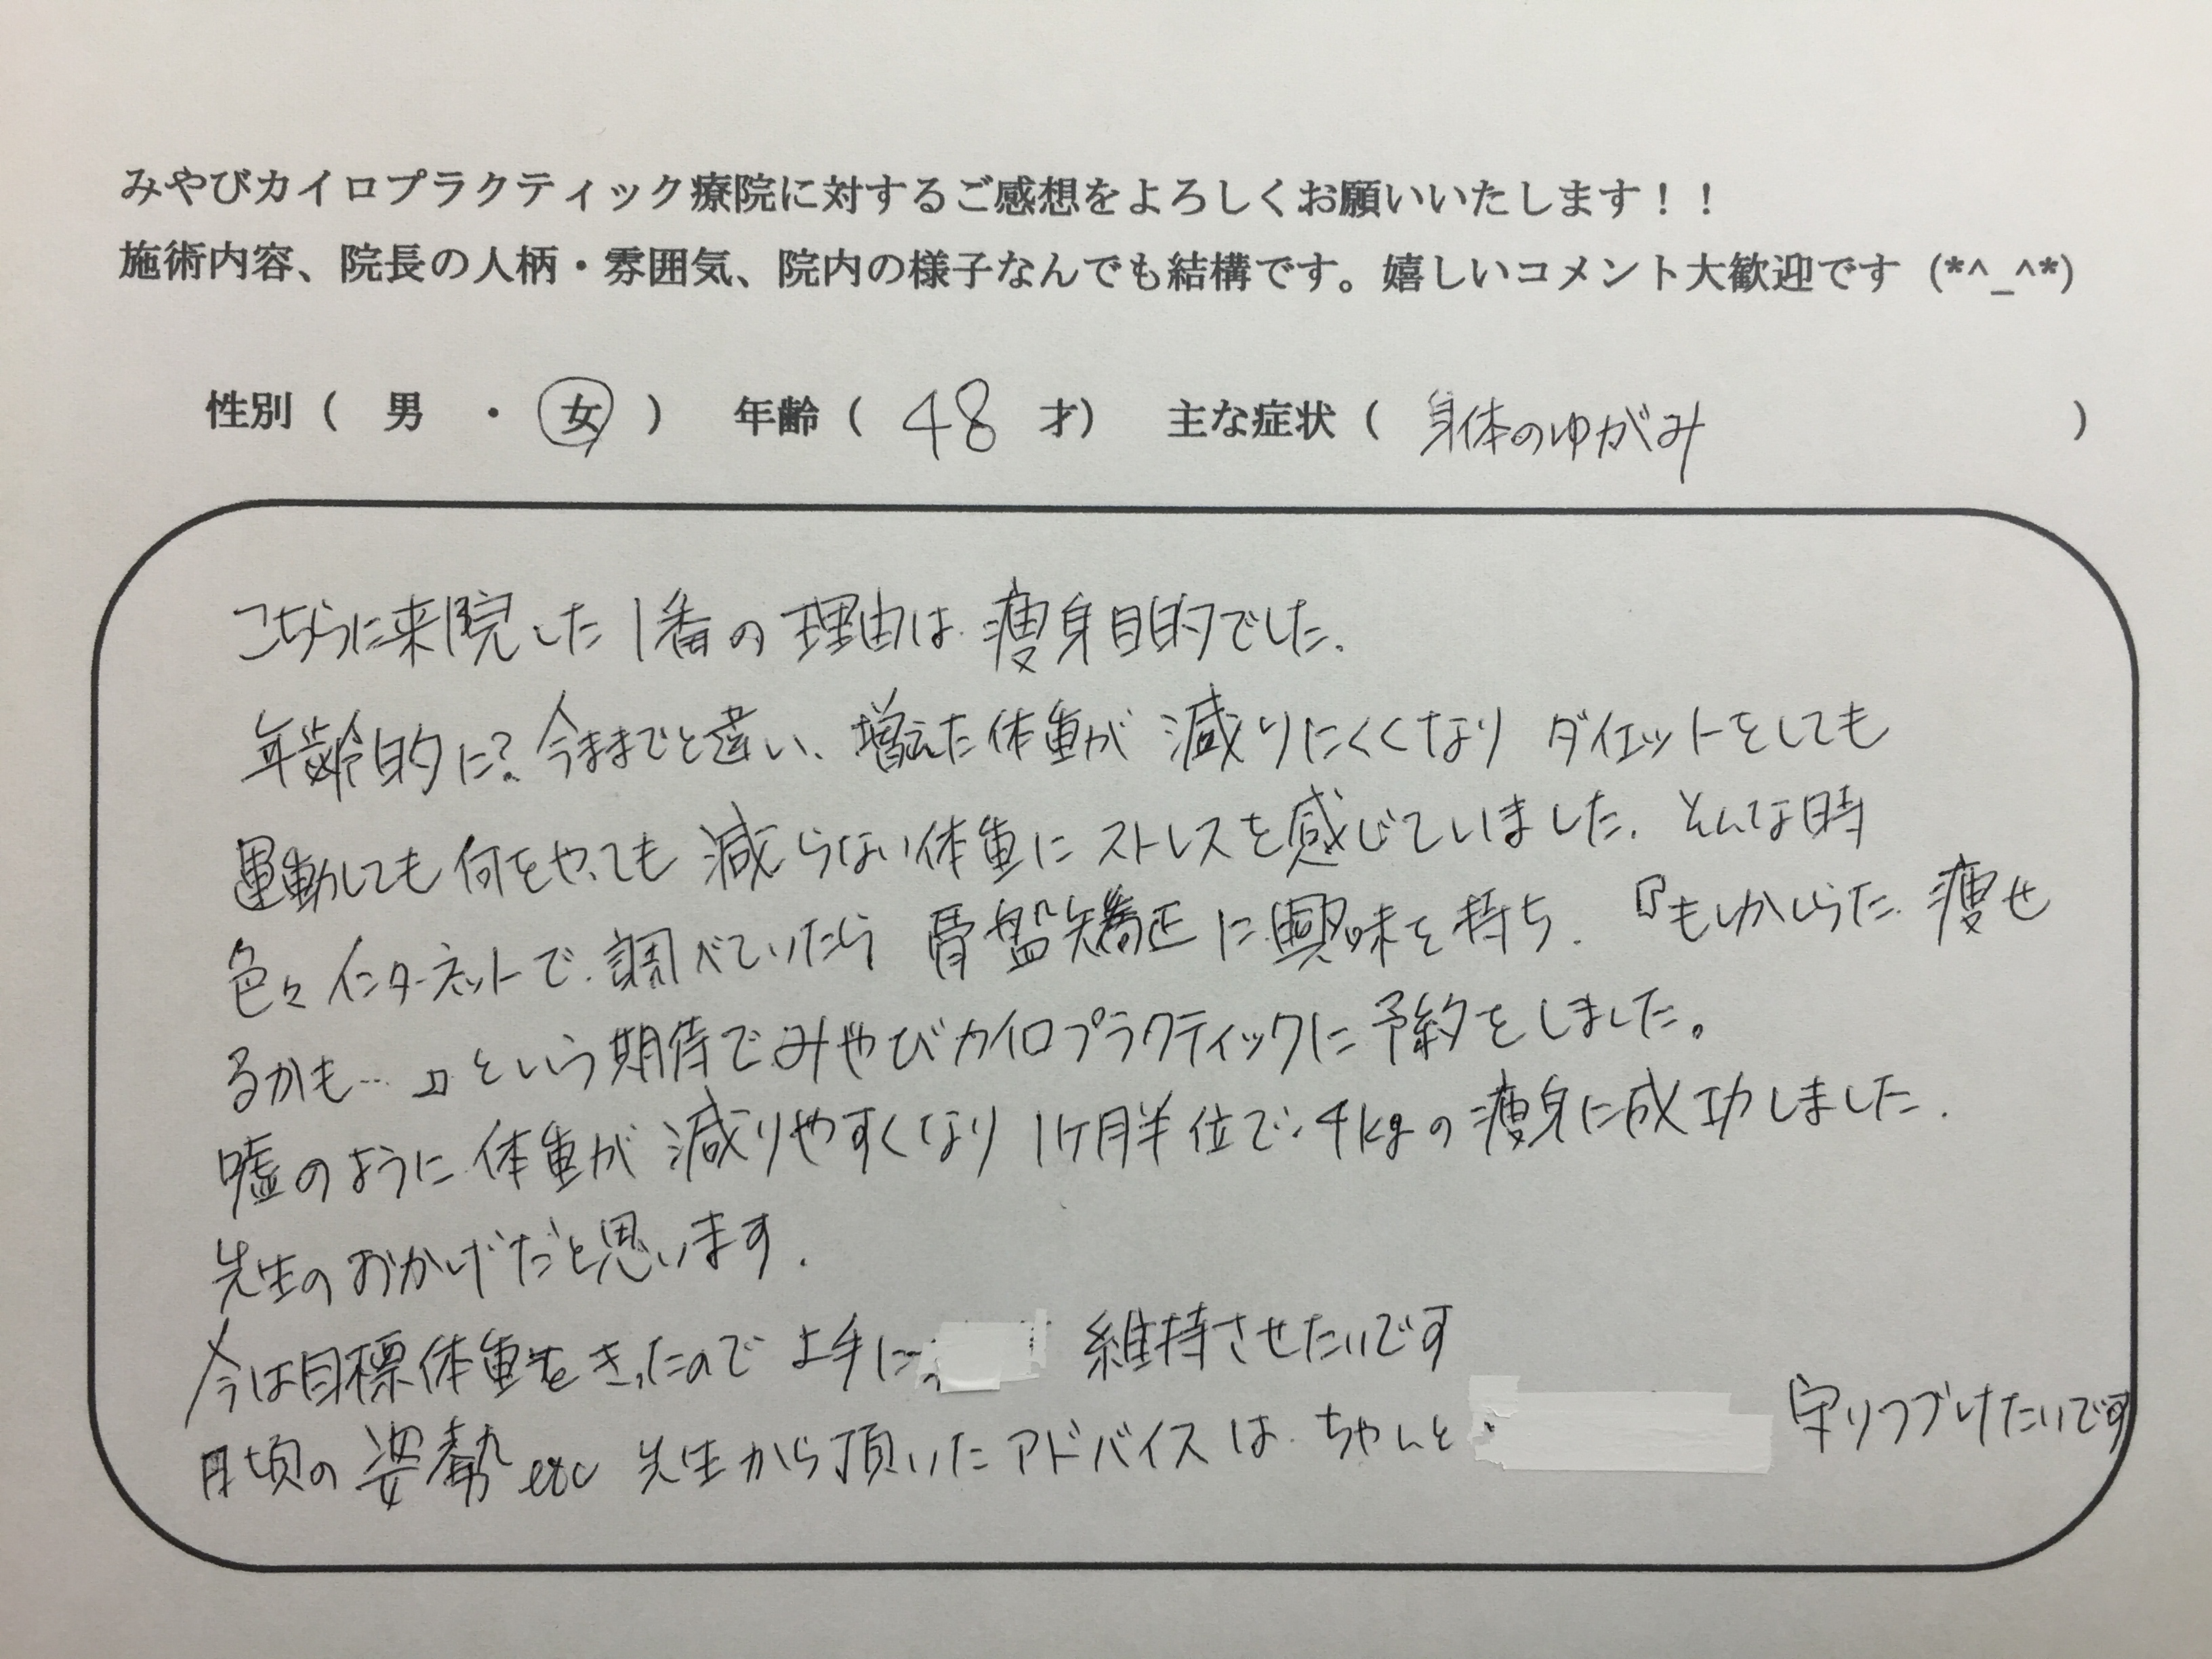 みやびカイロプラクティック療院に対するご感想をよろしくお願いいたします！！
施術内容、院長の人柄・雰囲気、院内の様子なんでも結構です。嬉しいコメント大歓迎です (*^_^*)
性別（ 男 ・ 女 ） 年齢（ 48 才） 主な症状（ 身体のゆがみ ）
こちらに来院した1番の理由は痩身目的でした.
年齢的に?今までと違い、増えた体重が減りにくくなりダイエットをしても
運動しても何をやっても減らない体重にストレスを感じていました. そんな時
色々インターネットで調べていたら骨盤矯正に興味を持ち. 『もしかしらた痩せ
るかも…』という期待でみやびカイロプラクティックに予約をしました。
嘘のように体重が減りやすくなり1ケ月半位で4kgの痩身に成功しました.
先生のおかげだと思います.
今は目標体重をきったので上手に 維持させたいです
日頃の姿勢etc 先生から頂いたアドバイスは ちゃんと 守りつづけたいです